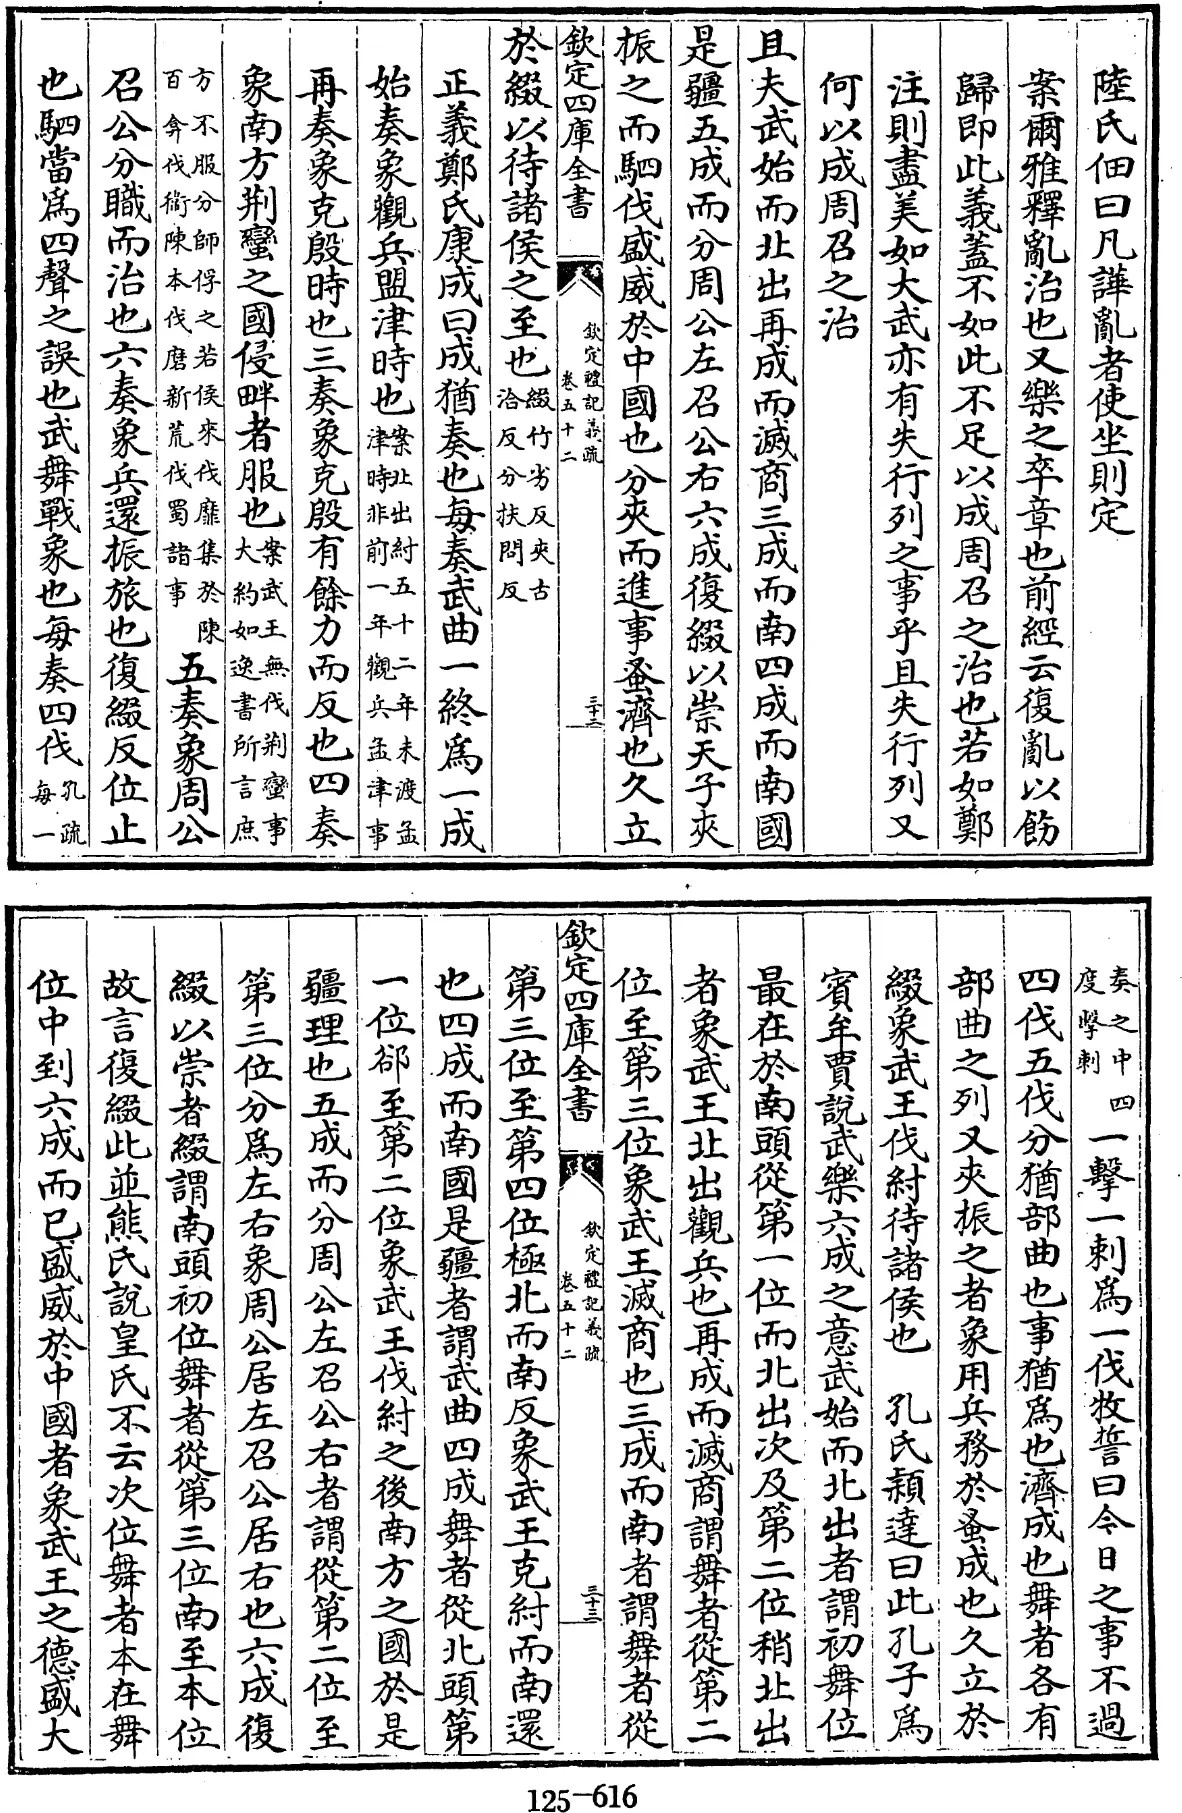 陸氏佃曰凡譁亂者使坐則定
案爾雅釋亂治也又樂之卒章也前經云復亂以飭
歸即此義蓋不如此不足以成周召之治也若如鄭
注則盡美如大武亦有失行列之事乎且失行列又
何以成周召之治
且夫武始而北出再成而滅商三成而南四成而南國
是疆五成而分周公左召公右六成復綴以崇天子夾
振之而駟伐盛威於中國也分夾而進事蚤濟也久立
欽定四庫全書
欽定禮記義疏
卷五十二
三十二
於綴以待諸侯之至也綴竹劣反夾古
洽反分扶問反
正義鄭氏康成曰成猶奏也每奏武曲一終爲一成
始奏象觀兵盟津時也案北出紂五十二年未渡孟
津時非前一年觀兵孟津事
再奏象克殷時也三奏象克殷有餘力而反也四奏
象南方荆蠻之國侵畔者服也案武王無伐荆蠻事
大約如逸書所言庶
方不服分師俘之若侯來伐靡集於陳
百弇伐衞陳本伐磨新荒伐蜀諸事
五奏象周公
召公分職而治也六奏象兵還振旅也復綴反位止
也駟當爲四聲之誤也武舞戰象也每奏四伐孔疏
每一
奏之中四
度擊刺
一擊一刺爲一伐牧誓曰今日之事不過
四伐五伐分猶部曲也事猶爲也濟成也舞者各有
部曲之列又夾振之者象用兵務於蚤成也久立於
綴象武王伐紂待諸侯也　孔氏穎達曰此孔子爲
賓牟賈說武樂六成之意武始而北出者謂初舞位
最在於南頭從第一位而北出次及第二位稍北出
者象武王北出觀兵也再成而滅商謂舞者從第二
位至第三位象武王滅商也三成而南者謂舞者從
欽定四庫全書
欽定禮記義疏
卷五十二
三十三
第三位至第四位極北而南反象武王克紂而南還
也四成而南國是疆者謂武曲四成舞者從北頭第
一位郤至第二位象武王伐紂之後南方之國於是
疆理也五成而分周公左召公右者謂從第二位至
第三位分爲左右象周公居左召公居右也六成復
綴以崇者綴謂南頭初位舞者從第三位南至本位
故言復綴此並熊氏說皇氏不云次位舞者本在舞
位中到六成而已盛威於中國者象武王之德盛大
125-616